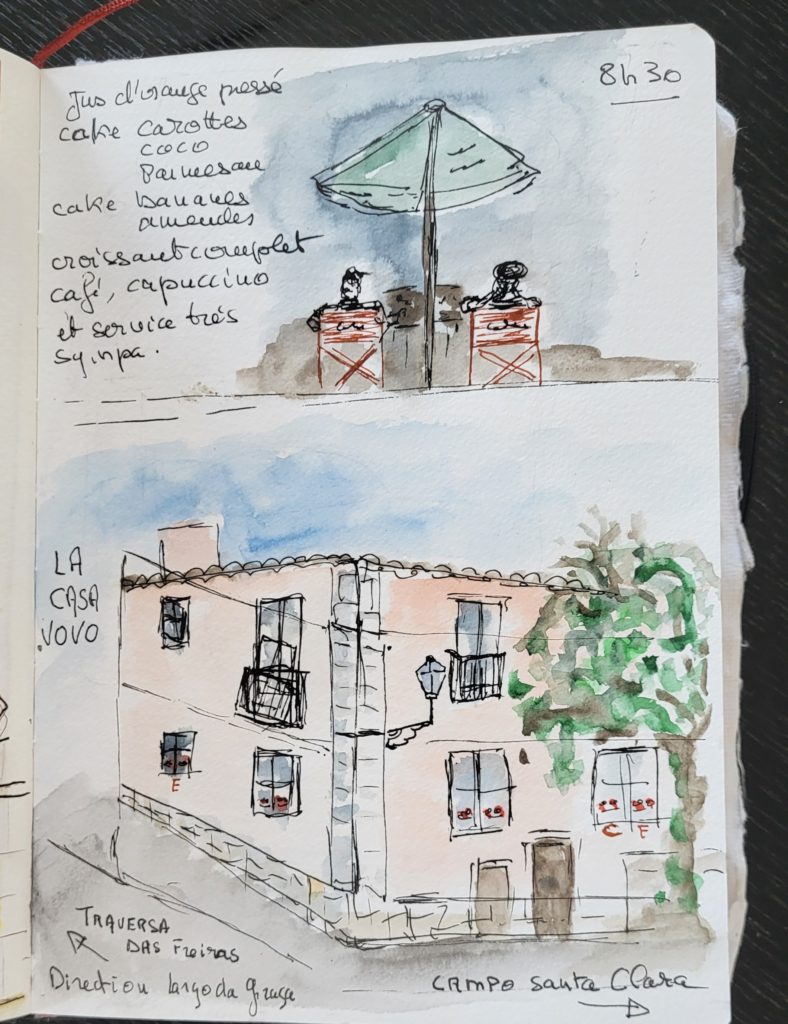 Jus d'orange pressé
cake carottes
coco
Parmesan
cake bananes
amendes
croissant complet
café, capuccino
et service très
sympa.
8h30
LA
CASA
VOVO
E
C E
TRAVERSA
DAS FReiRAS
Direction largo da graça
CAMPO Santa Clara